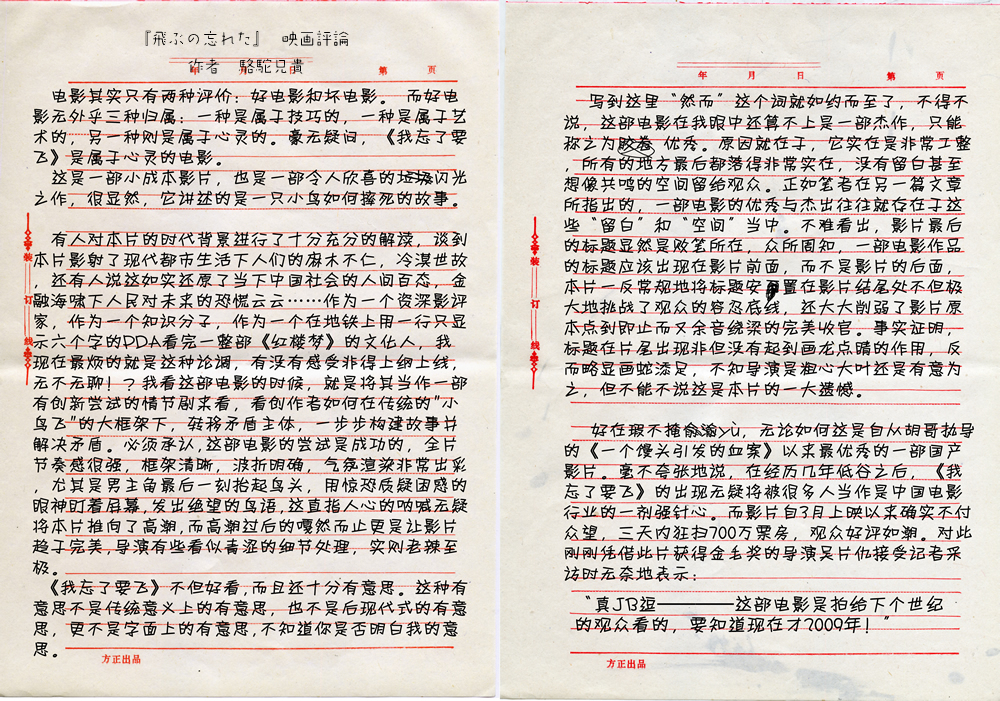 『飛ぶの忘れた』 映画評論
作者 駱駝兄貴
年 月 日 第 页
电影其实只有两种评价：好电影和坏电影。 而好电
影无外乎三种归属：一种是属于技巧的，一种是属于艺
术的，另一种则是属于心灵的。毫无疑问，《我忘了要
飞》是属于心灵的电影。
这是一部小成本影片，也是一部令人欣喜的 闪光
之作，很显然，它讲述的是一只小鸟如何摔死的故事。
有人对本片的时代背景进行了十分充分的解读，谈到
本片影射了现代都市生活下人们的麻木不仁，冷漠世故
，还有人说这如实还原了当下中国社会的人间百态，金
融海啸下人民对未来的恐慌云云……作为一个资深影评
家，作为一个知识分子，作为一个在地铁上用一行只显
示六个字的PDA看完一整部《红楼梦》的文化人，我
现在最烦的就是这种论调，有没有感受非得上纲上线，
无不无聊！？我看这部电影的时候，就是将其当作一部
有创新尝试的情节剧来看，看创作者如何在传统的"小
鸟飞"的大框架下，转移矛盾主体，一步步构建故事并
解决矛盾。必须承认，这部电影的尝试是成功的，全片
节奏感很强，框架清晰，波折明确，气氛渲染非常出彩
，尤其是男主角最后一刻抬起鸟头，用惊恐质疑困惑的
眼神盯着屏幕，发出绝望的鸟语，这直指人心的呐喊无疑
将本片推向了高潮，而高潮过后的嘎然而止更是让影片
趋于完美，导演有些看似青涩的细节处理，实则老辣至
极。
《我忘了要飞》不但好看，而且还十分有意思。这种有
意思不是传统意义上的有意思，也不是后现代式的有意
思，更不是字面上的有意思，不知道你是否明白我的意
思。
方正出品
装
订
线
年 月 日 第 页
写到这里"然而"这个词就如约而至了，不得不
说，这部电影在我眼中还算不上是一部杰作，只能
称之为胶卷 优秀。原因就在于，它实在是非常工整
，所有的地方最后都落得非常实在，没有留白甚至
想像共鸣的空间留给观众。正如笔者在另一篇文章
所指出的，一部电影的优秀与杰出往往就存在于这
些"留白"和"空间"当中。不难看出，影片最后
的标题显然是败笔所在，众所周知，一部电影作品
的标题应该出现在影片前面，而不是影片的后面，
本片一反常规地将标题安 置在影片结尾处不但极
大地挑战了观众的容忍底线，还大大削弱了影片原
本点到即止而又余音绕梁的完美收官。事实证明，
标题在片尾出现非但没有起到画龙点睛的作用，反
而略显画蛇添足，不知导演是粗心大叶还是有意为
之，但不能不说这是本片的一大遗憾。
好在瑕不掩 yù，无论如何这是自从胡哥执导
的《一个馒头引发的血案》以来最优秀的一部国产
影片。毫不夸张地说，在经历几年低谷之后，《我
忘了要飞》的出现无疑将被很多人当作是中国电影
行业的一剂强针心。而影片自3月上映以来确实不付
众望，三天内狂扫700万票房，观众好评如潮。对此
刚刚凭借此片获得金毛奖的导演吴片仇接受记者采
访时无奈地表示：
"真JB逗————这部电影是拍给下个世纪
的观众看的，要知道现在才2009年！"
方正出品
装
订
线